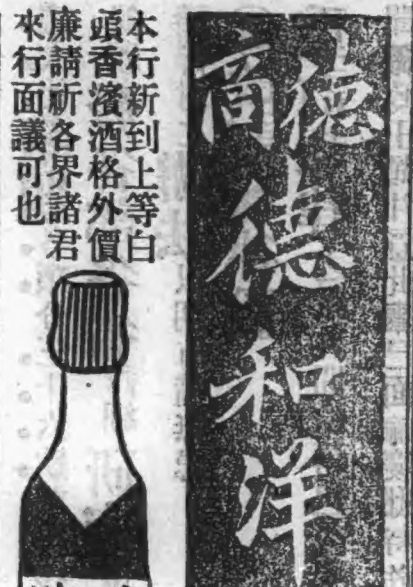 德商
德和洋
本行新到上等白
頭香濱酒格外價
廉請祈各界諸君
來行面議可也